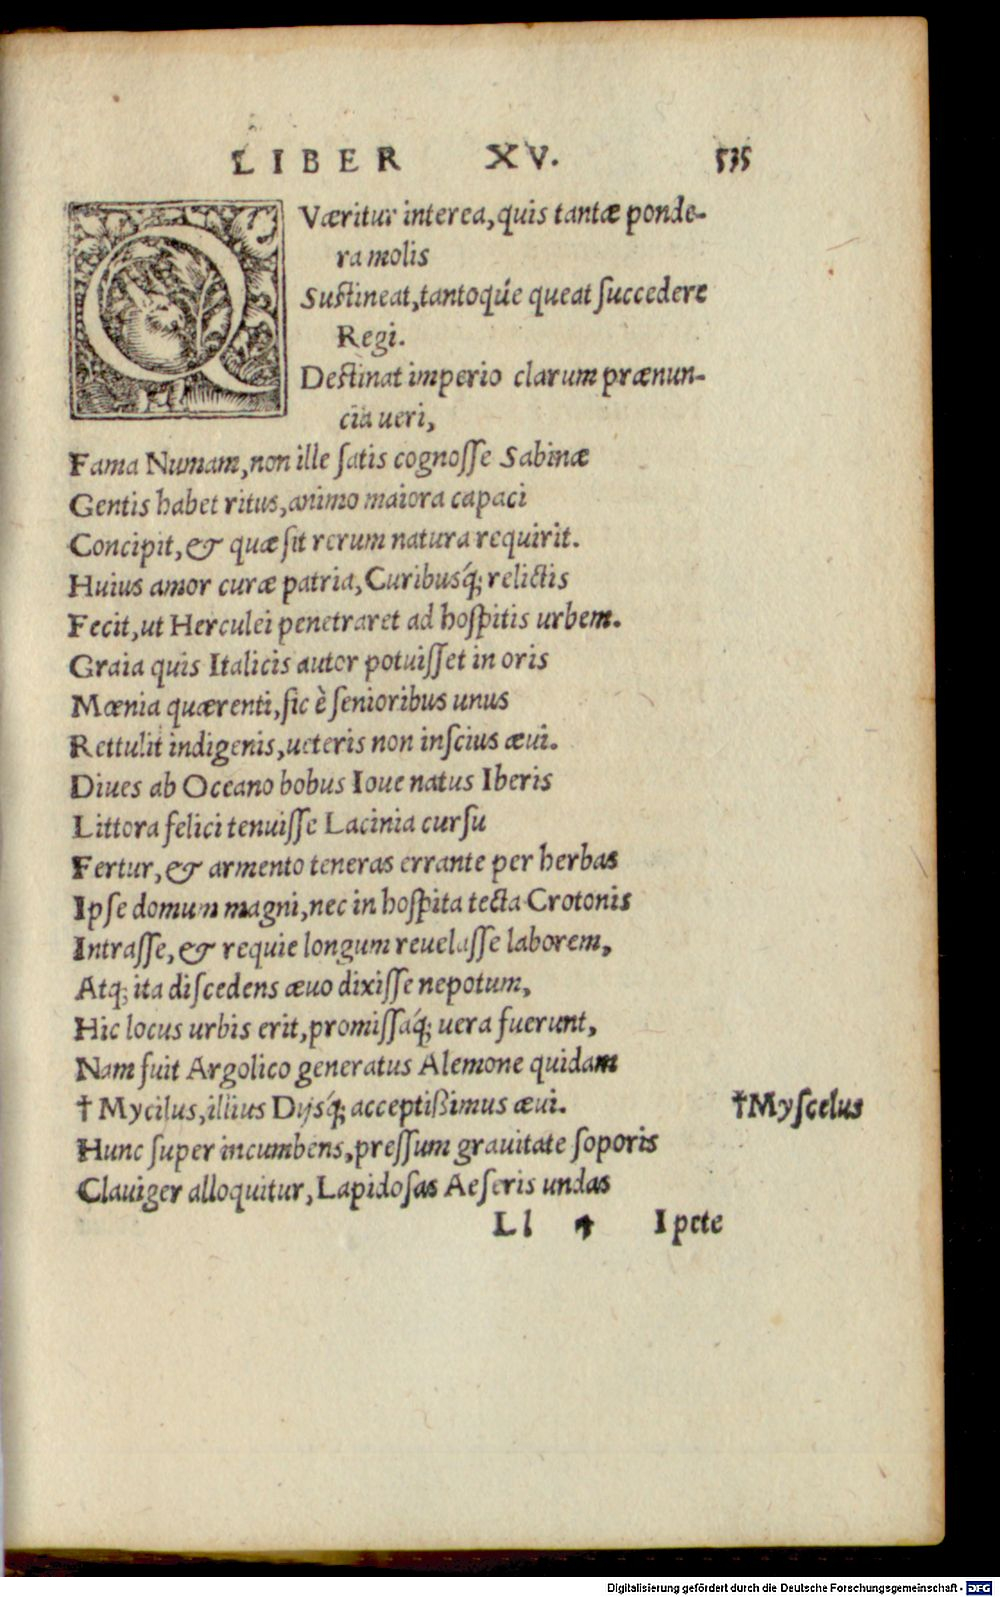 LIBER XV. 535
QVæritur interea, quis tantæ ponde-
ra molis
Sustineat, tantoqúe queat succedere
Regi.
Destinat imperio clarum prænun-
cia ueri,
Fama Numam, non ille satis cognosse Sabinæ
Gentis habet ritus, animo maiora capaci
Concipit, & quæ sit rerum natura requirit.
Huius amor curæ patria, Curibusq́; relictis
Fecit, ut Herculei penetraret ad hospitis urbem.
Graia quis Italicis autor potuisset in oris
Mœnia quærenti, sic è senioribus unus
Rettulit indigenis, ueteris non inscius æui.
Diues ab Oceano bobus Ioue natus Iberis
Littora felici tenuisse Lacinia cursu
Fertur, & armento teneras errante per herbas
Ipse domum magni, nec in hospita tecta Crotonis
Intrasse, & requie longum reuelasse laborem,
Atq; ita discedens æuo dixisse nepotum,
Hic locus urbis erit, promissaq́; uera fuerunt,
Nam fuit Argolico generatus Alemone quidam
† Mycilus, illius Dijsq́; acceptißimus æui. †Myscelus
Hunc super incumbens, pressum grauitate soporis
Clauiger alloquitur, Lapidosas Aeseris undas
Ll 4 I pete
Digitalisierung gefördert durch die Deutsche Forschungsgemeinschaft - DFG